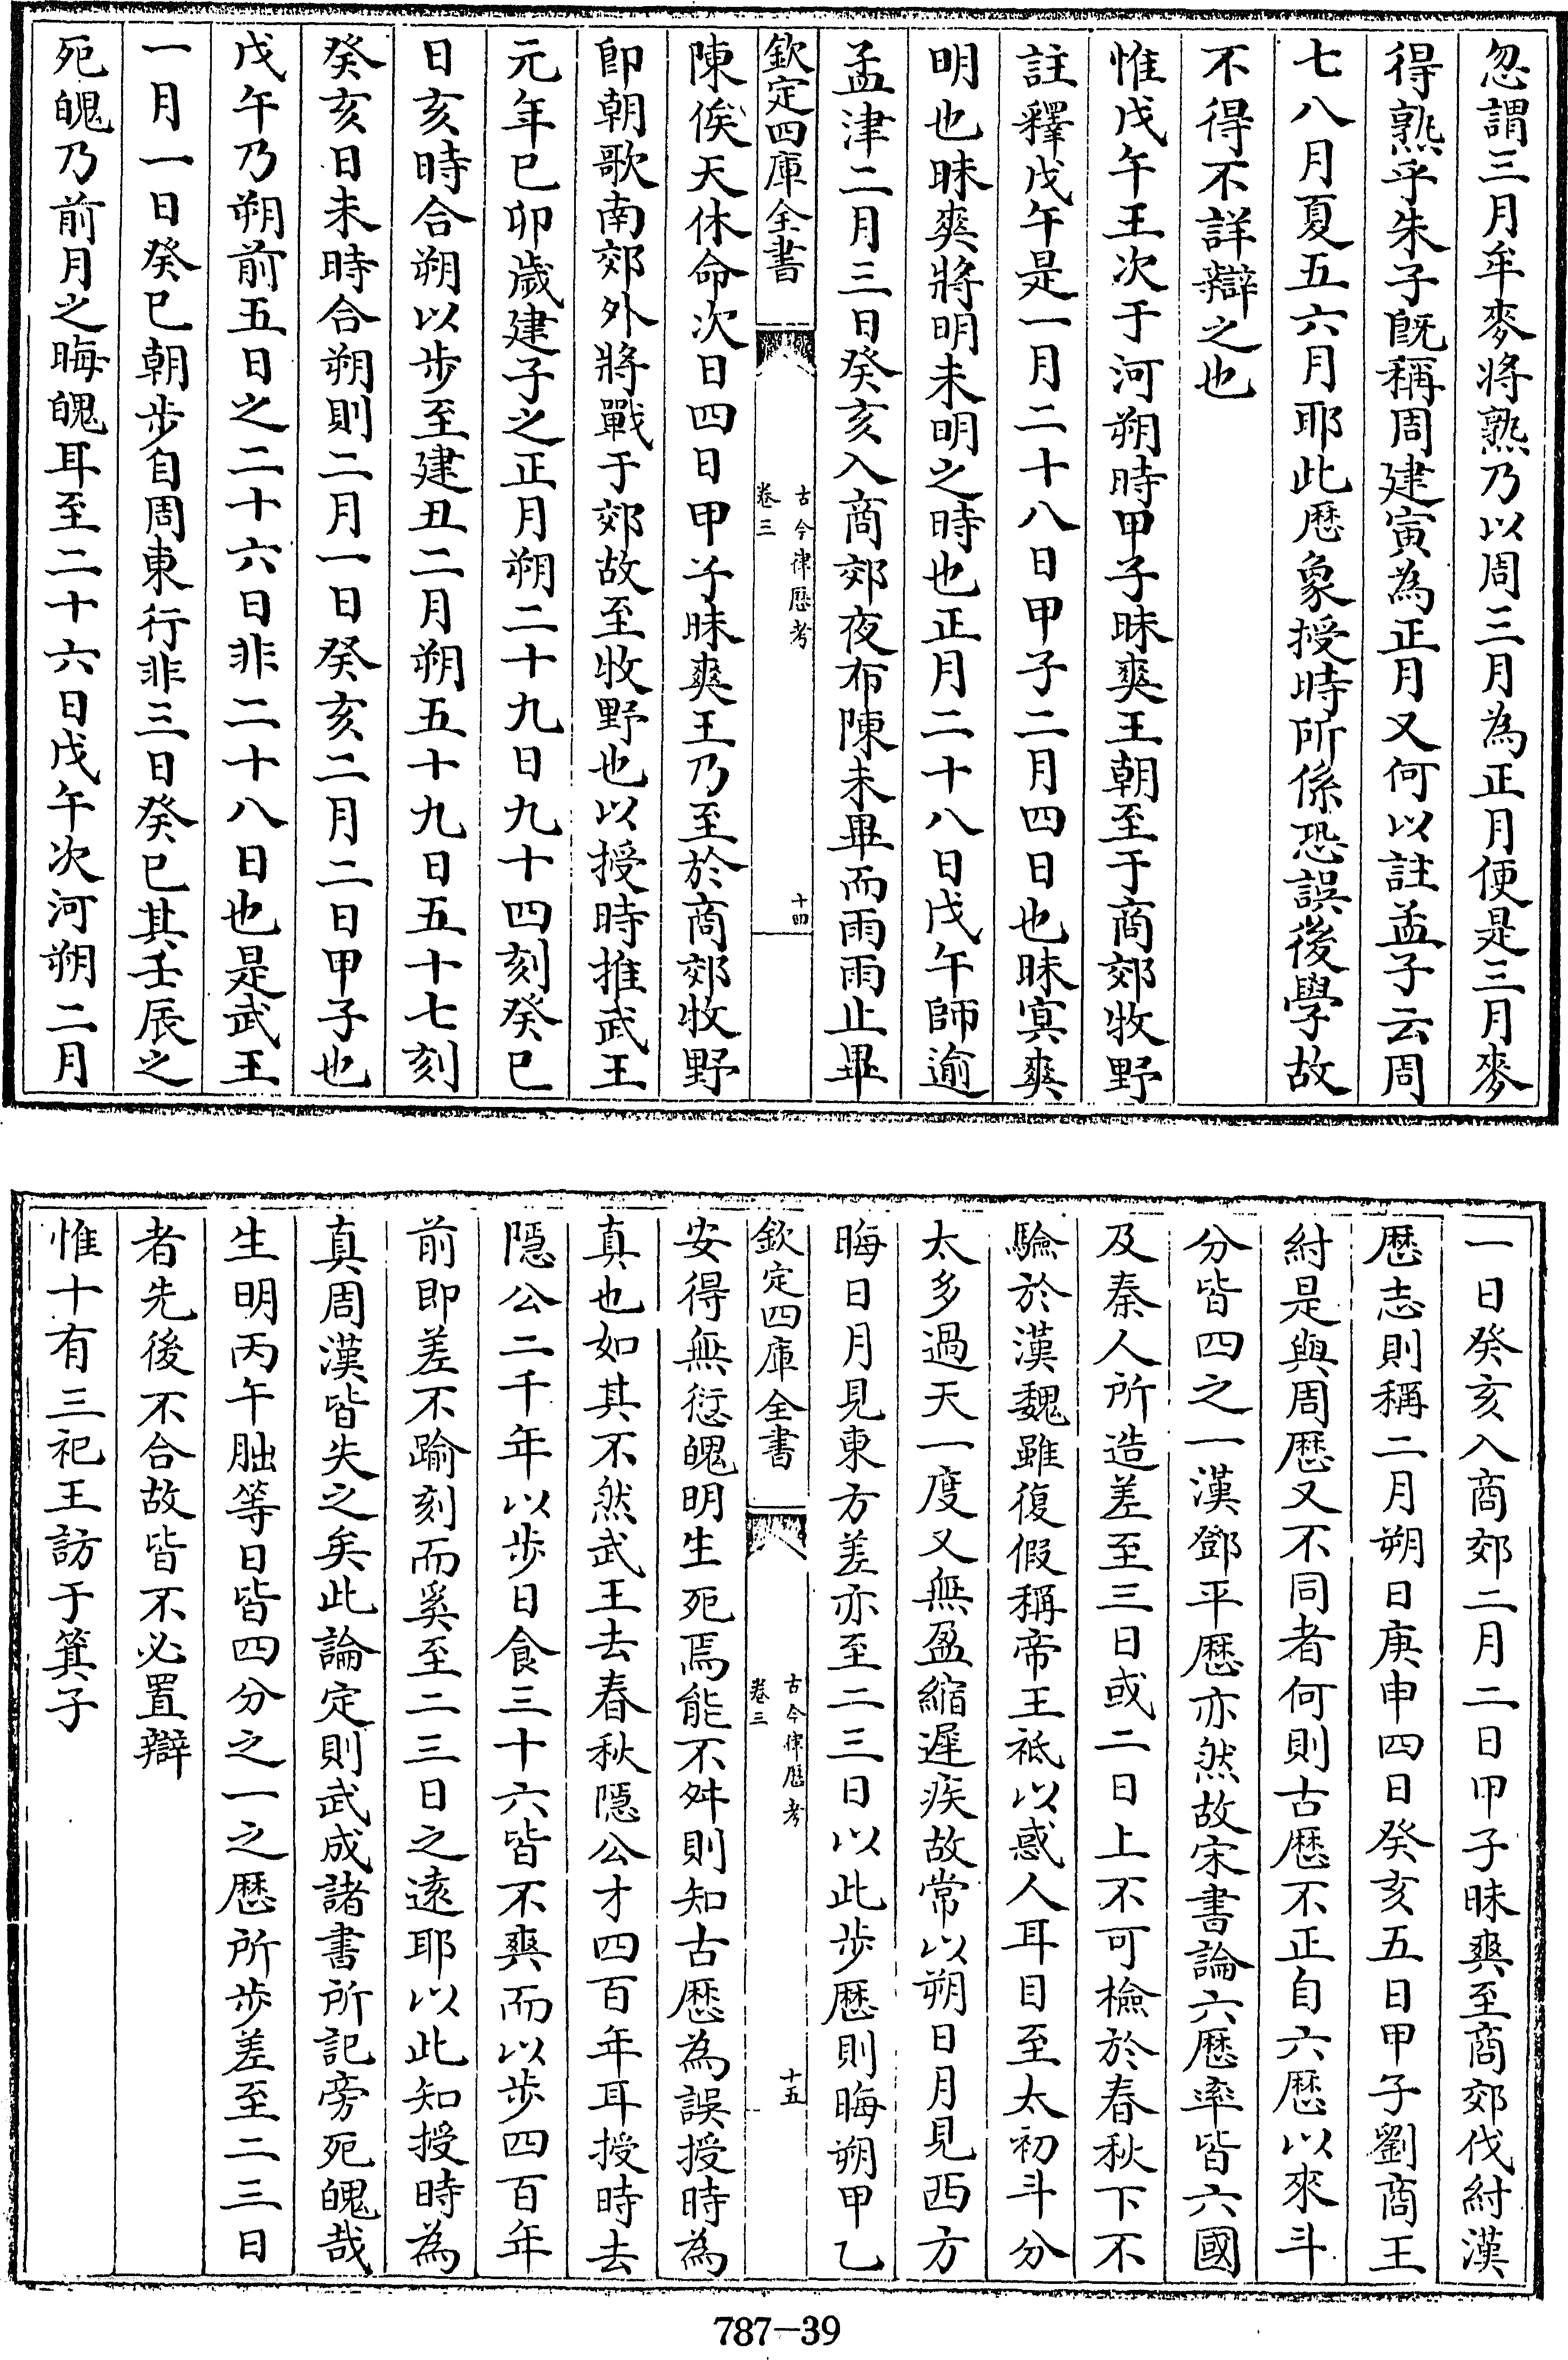 忽謂三月牟麥將熟乃以周三月為正月便是三月麥
得熟乎朱子旣稱周建寅為正月又何以註孟子云周
七八月夏五六月耶此歴象授時所係恐誤後學故
不得不詳辯之也
惟戊午王次于河朔時甲子昧爽王朝至于商郊牧野
註釋戊午是一月二十八日甲子二月四日也昧㝠爽
明也昧爽將明未明之時也正月二十八日戊午師逾
孟津二月三日癸亥入商郊夜布陳未畢而雨雨止畢
欽定四庫全書
古今律歴考
卷三
十四
陳俟天休命次日四日甲子昧爽王乃至於商郊牧野
卽朝歌南郊外將戰于郊故至收野也以授時推武王
元年巳卯歲建子之正月朔二十九日九十四刻癸巳
日亥時合朔以步至建丑二月朔五十九日五十七刻
癸亥日未時合朔則二月一日癸亥二月二日甲子也
戊午乃朔前五日之二十六日非二十八日也是武王
一月一日癸巳朝步自周東行非三日癸巳其壬辰之
死魄乃前月之晦魄耳至二十六日戊午次河朔二月
一日癸亥入商郊二月二日甲子昧爽至商郊伐紂漢
歴志則稱二月朔日庚申四日癸亥五日甲子劉商王
紂是與周歴又不同者何則古歴不正自六歴以來斗
分皆四之一漢鄧平歴亦然故宋書論六歴率皆六國
及秦人所造差至三日或二日上不可檢於春秋下不
驗於漢魏雖復假稱帝王祗以惑人耳目至太初斗分
太多過天一度又無盈縮遲疾故常以朔日月見西方
晦日月見東方差亦至二三日以此步歴則晦朔甲乙
欽定四庫全書
古今律歴考
卷三
十五
安得無愆魄明生死焉能不舛則知古歴為誤授時為
真也如其不然武王去春秋隱公才四百年耳授時去
隱公二千年以步日食三十六皆不爽而以步四百年
前即差不踰刻而奚至二三日之遠耶以此知授時為
真周漢皆失之矣此論定則武成諸書所記旁死魄哉
生明丙午朏等日皆四分之一之歴所步差至二三日
者先後不合故皆不必置辯
惟十有三祀王訪于箕子
787-39